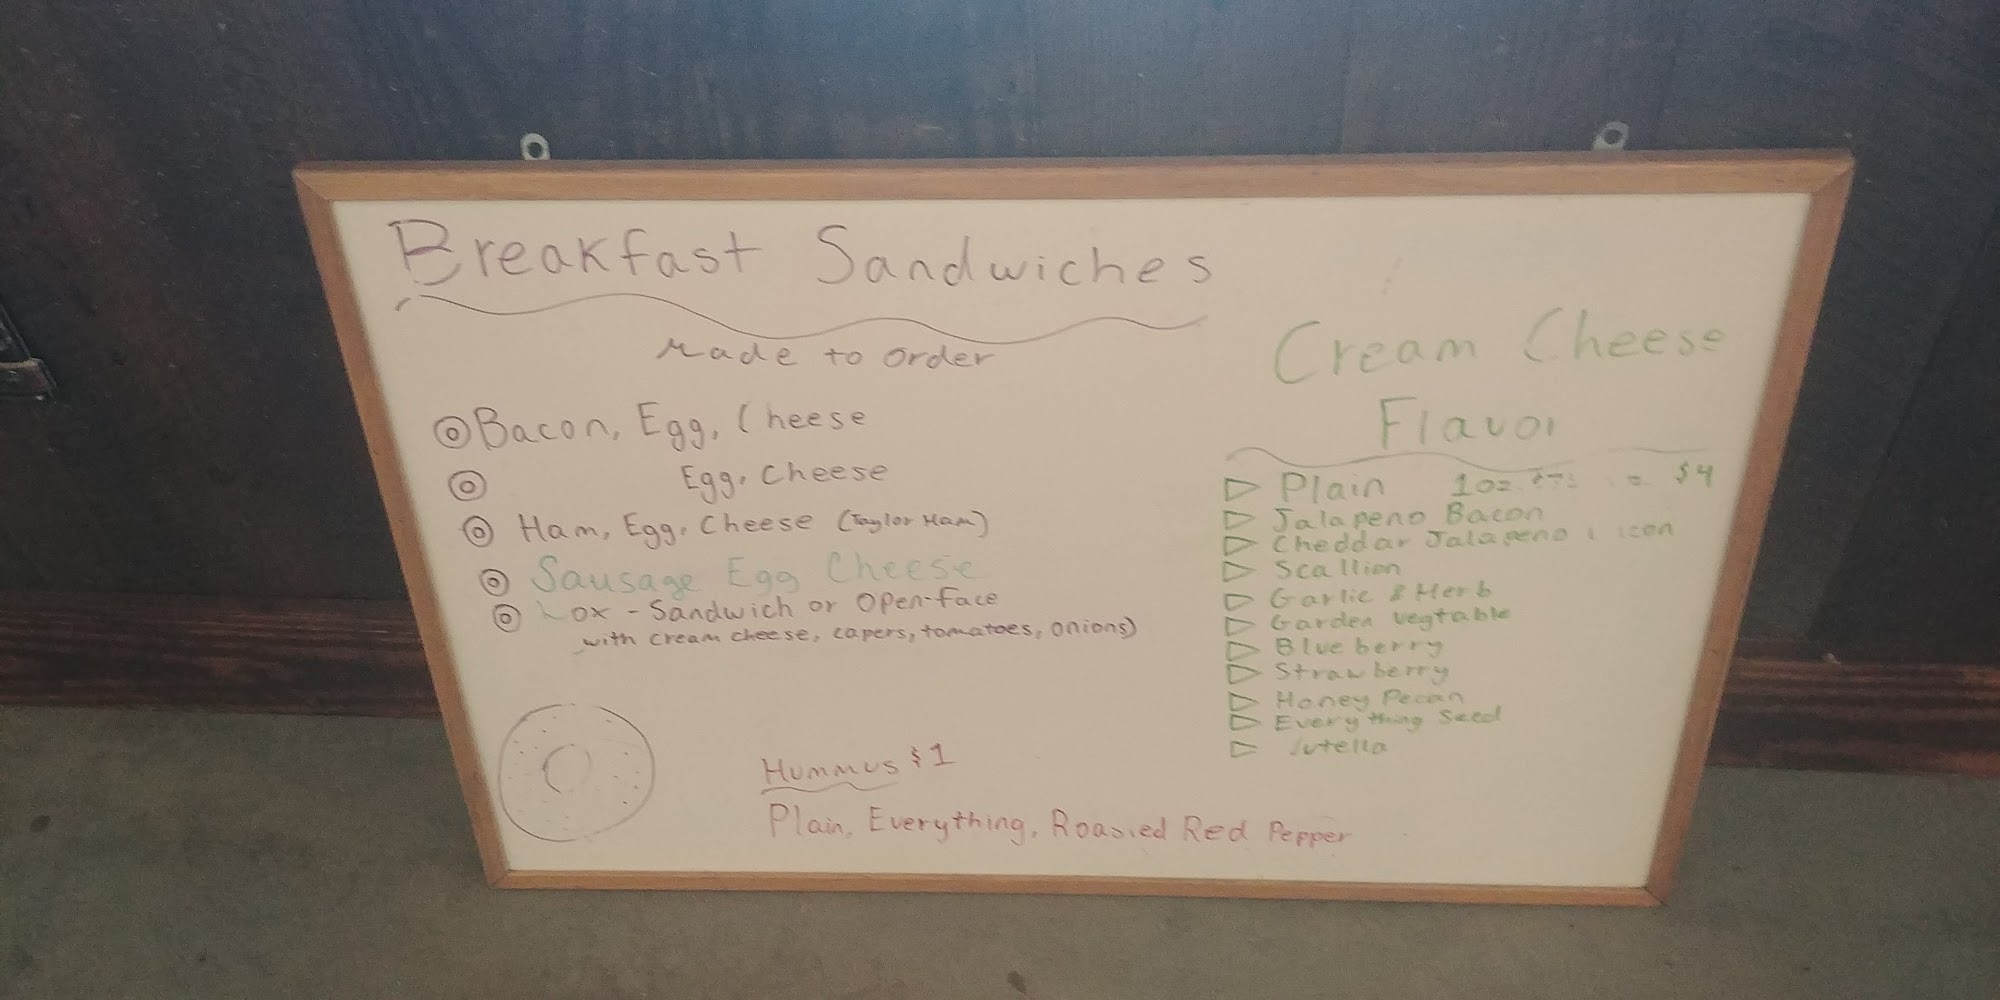 Breakfast Sandwiches
Made to order
Bacon, Egg, Cheese
Egg, Cheese
Ham, Egg, Cheese (Taylor Ham)
Sausage Egg Cheese
Lox - Sandwich or Open-face
with cream cheese, capers, tomatoes, onions)
Hummus $1
Plain, Everything, Roasted Red Pepper
Cream Cheese
Flavor
Plain 1oz $4
Jalapeno Bacon
Cheddar Jalapeno
Scallion
Garlic & Herb
Garden Vegtable
Blueberry
Strawberry
Honey Pecan
Everything Seed
utella